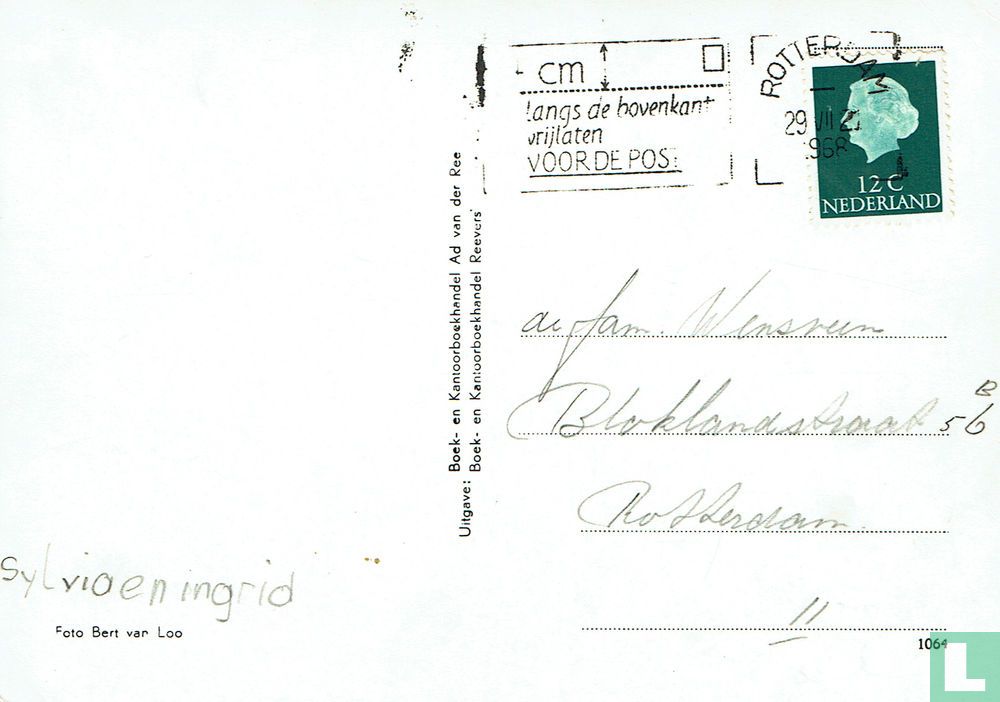 cm
langs de bovenkant
vrijlaten
VOOR DE POST
ROTTERDAM
29 VII 2
1968
12 C
NEDERLAND
Uitgave: Boek- en Kantoorboekhandel Ad van der Ree
Boek- en Kantoorboekhandel Reevers'
de fam. Wensveen
Bloklandstraat 56 B
Rotterdam
11
Sylvia en ingrid
Foto Bert van Loo
1064
L